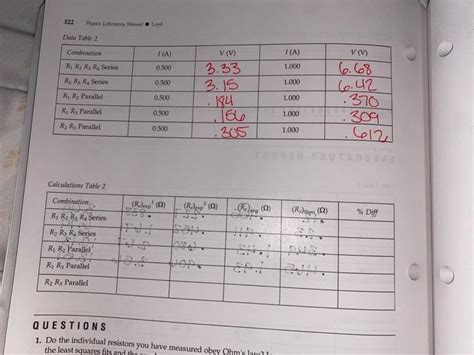 322 Physics Laboratory Manual ■ Loyd
Data Table 2
Combination I (A) V (V) I (A) V (V)
R1 R2 R3 R4 Series 0.500 3.33 1.000 6.68
R2 R3 R4 Series 0.500 3.15 1.000 6.42
R1 R2 Parallel 0.500 .184 1.000 .370
R1 R3 Parallel 0.500 .156 1.000 .309
R2 R3 Parallel 0.500 .305 1.000 .612
Calculations Table 2
Combination (Re)exp 1 (Ω) (Re)exp 2 (Ω) (Re)exp (Ω) (Re)theo (Ω) % Diff
R1 R2 R3 R4 Series
R2 R3 R4 Series
R1 R2 Parallel
R1 R3 Parallel
R2 R3 Parallel
QUESTIONS
1. Do the individual resistors you have measured obey Ohm's law?
the least squares fits and the